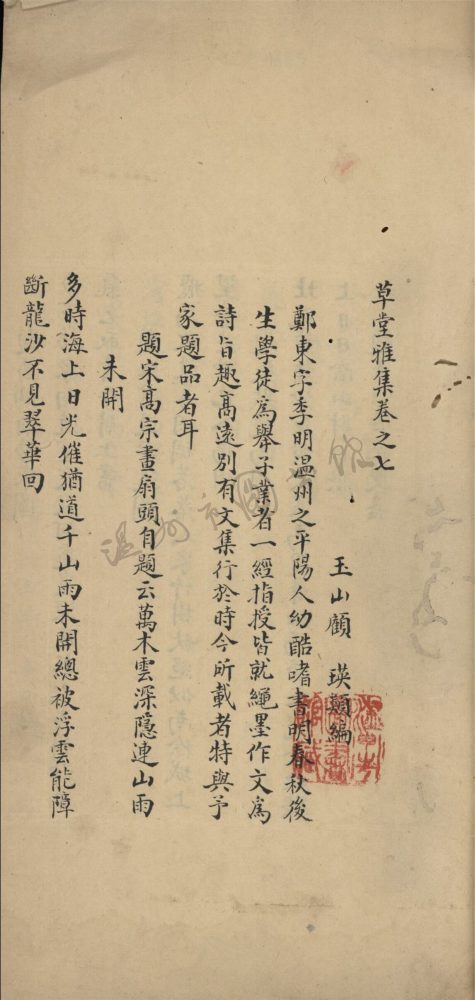 草堂雅集卷之七
玉山顧　瑛類編
鄭東字季明温州之平陽人幼酷嗜書明春秋後
生學徒爲舉子業者一經指授皆就繩墨作文爲
詩旨趣髙遠别有文集行於時今所載者特與予
家題品者耳
題宋髙宗畫扇頭自題云萬木雲深隐連山雨
未開
多時海上日光催猶道千山雨未開總被浮雲能障
斷龍沙不見翠華回
温州市圖書館